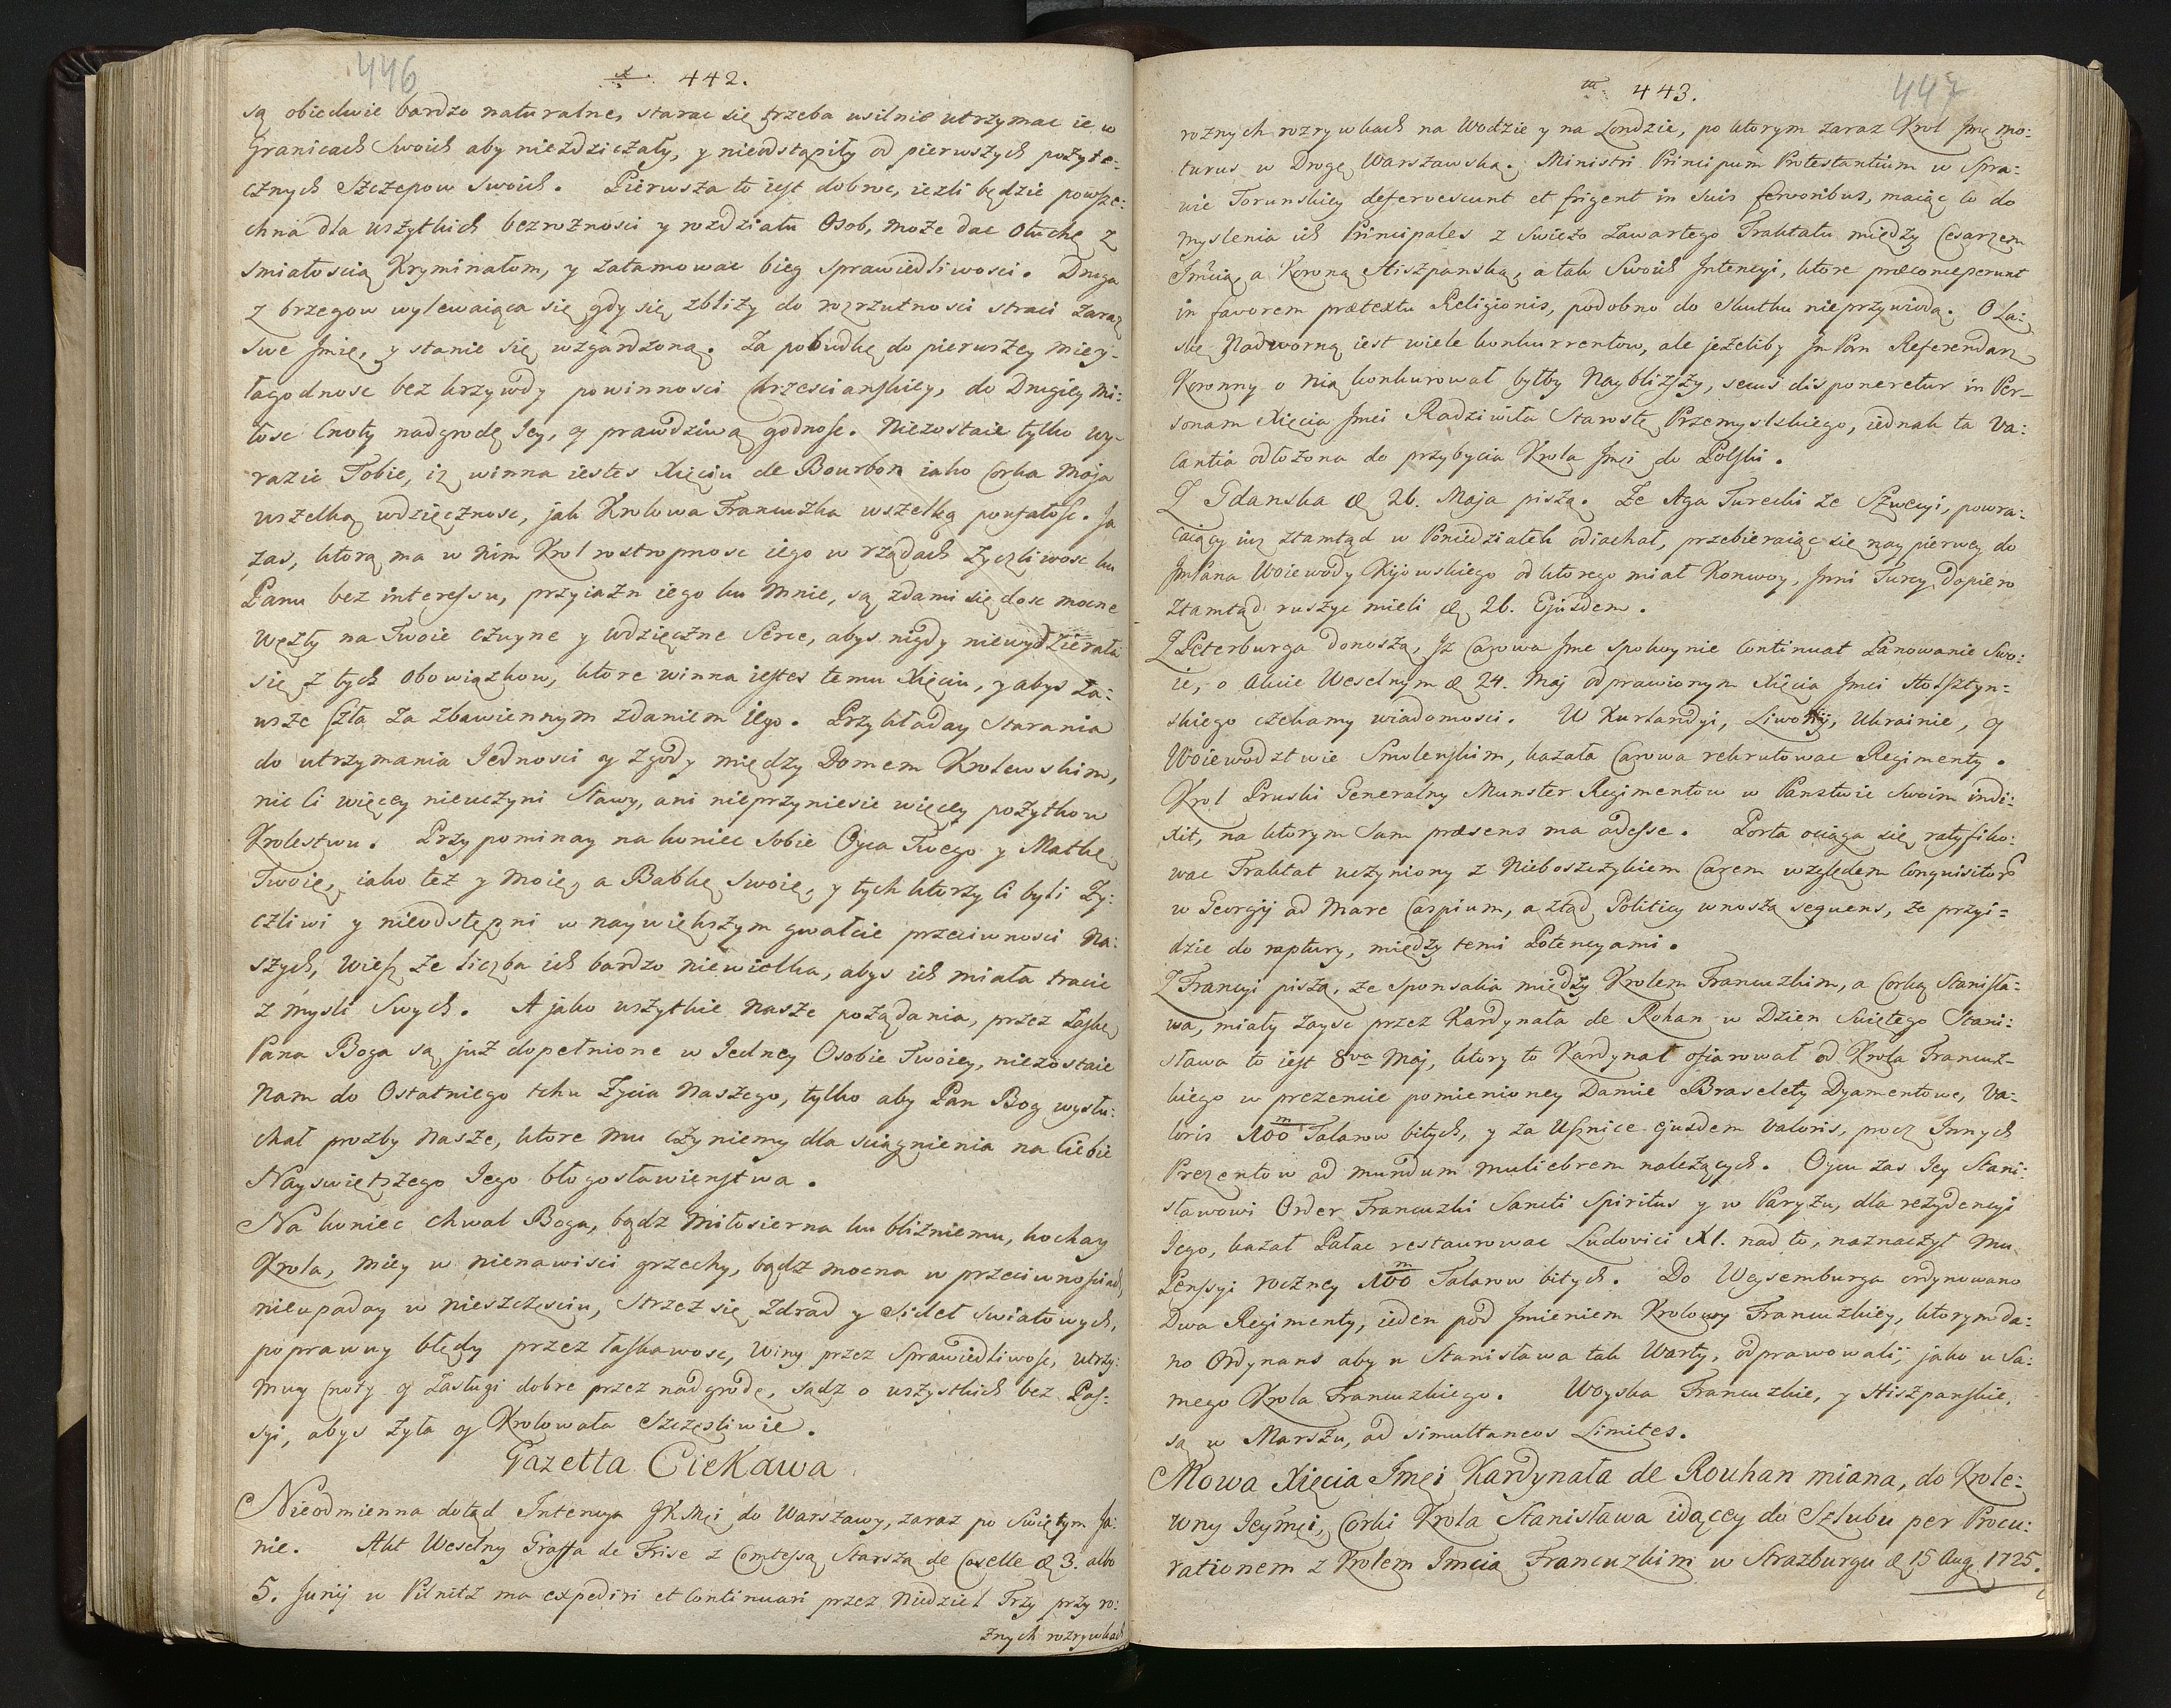 446
442.
są obiedwie bardzo naturalne, starac się trzeba usilnie utrzymac ie w
Granicach Swoich aby niezdziczały, y nieodstąpiły od pierwszych pożyte-
cznych Szczepow Swoich. Pierwsza to iest dobroc, iezli będzie powsze:
chna dla wszytkich bezrożnosci y rozdziału Osob, może dac Otuchę z
smiałoscią Kryminałom, y zatamowac bieg sprawiedliwosci. Druga
z brzegow wylewaiąca się gdy się zbliży do rozrzutnosci straci zaraz
swe Jmie, y stanie się wzgardzoną. Za pobudkę do pierwszey miey-
łagodnosc bez krzywdy powinnosci Chrzescianskiey, do Drugiey Mi:
łosc Cnoty nadgrodę Iey, y prawdziwą godnosc. Niezostaie tylko wy-
razic Tobie, iż winna iestes Xięciu de Bourbon iako Corka Moja
wszelką wdzięcznosc, jak Krolowa Francuzka wszelką poufałosc. Ja
zas, ktorą ma w nim Krol rostropnosc iego w rządach życzliwosc ku
Panu bez interessu, przyiazn iego ku Mnie, są zdami się dosc mocne
Węzły na Twoie czuyne y wdzięczne Serce, abys nigdy niewydzierała
się z tych Obowiązkow, ktore winna iestes temu Xięciu, y abys za:
wsze szła za zbawiennym zdaniem iego. Przykładay Starania
do utrzymania Jednosci y zgody między Domem Krolewskim,
nic Ci więcey nieuczyni Sławy, ani nieprzyniesie więcey pożytkow
Krolestwu. Przypominay na koniec sobie Oyca Twego y Matkę
Twoię, iako też y Moię, a Babkę Swoię, y tych ktorzy Ci byli Ży:
czliwi y nieodstępni w naywiększym gwałcie przeciwnosci Na:
szych, wiesz że liczba ich bardzo niewielka, abys ich miała tracic
z mysli Swych. A jako wszytkie nasze pożądania, przez Łaskę
Pana Boga są już dopełnione w Jedney Osobie Twoiey, niezostaie
Nam do Ostatniego tchu Życia Naszego, tylko aby Pan Bog wysłu:
chał prozby Nasze, ktore Mu czyniemy dla sciągnienia na Ciebie
Nayswiętszego Jego błogosławienstwa.
Na koniec chwal Boga, bądz Miłosierna ku bliżniemu, kochay
Krola, miey w nienawisci grzechy, bądz mocna w przeciwnosciach,
nieupaday w nieszczęsciu, strzeż się zdrad y sideł swiatowych,
poprawuy błędy przez łaskawosc, Winy przez Sprawiedliwosc, utrzy:
muy Cnoty y Zasługi dobre przez nadgrodę, sądz o wszystkich bez Pas:
syi, abys żyła y Krolowała Szczęsliwie.
Gazetta Ciekawa
Nieodmienna dotąd Intencya JKMci do Warszawy, zaraz po Swiętym Ja:
nie. Akt Weselny Graffa de Frise z Comtessą Starszą de Coselle d 3. albo
5. Junij w Pilnitz ma expediri et Continuari przez Niedziel Trzy przy ro:
żnych rozrywkach
447
443.
rożnych rozrywkach na Wodzie y na Londzie, po ktorym zaraz Krol Jmć mo:
turus w Drogę Warszawską. Ministri Principum Protestantium w Spra:
wie Torunskiey defervescunt et frigent in suis fervoribus, maiąc co do
myslenia ich Principales z Swieżo zawartego Traktatu między Cesarzem
Jmcią, a Koroną Hiszpanską, a tak Swoich Jntencyi, ktore præconceperunt
in favorem prætextu Religionis, podobno do skutku nieprzywiodą. O La:
skę Nadworną iest wiele konkurrentow, ale jeżeliby Jm Pan Referendarz
Koronny o nią konkurował byłby Naybliższy, secus disponeretur in Per-
sonam Xięcia Jmci Radziwiła Starostę Przemyslskiego, iednak ta Va:
Cantia odłożona do przybycia Krola Jmci do Polski.
Z Gdanska d 26. Maja piszą. Ze Aga Turecki ze Szwecyi, powra:
caiący iuż ztamtąd w Poniedziałek odiachał, przebieraiąc się naypierwey do
JmPana Woiewody Kijowskiego od ktorego miał Konwoy, Jnni Turcy dopiero
ztamtąd ruszyc mieli d 26. Ejusdem.
Z Peterburga donoszą, Jż Carowa Jmc spokoynie Continuat Panowanie Swo:
ie, o Akcie Weselnym d 24. Maj odprawionym Xięcia Jmci Holsztyn-
skiego czekamy wiadomosci. W Kurlandyi, Liwonij, Ukrainie, y
Woiewodztwie Smolenskim, kazała Carowa rekrutowac Regimenty.
Krol Pruski Generalny Munster Regimentow w Panstwie Swoim indi:
xit, na ktorym Sam præsens ma adesse. Porta ociąga się ratyfiko:
wac Traktat uczyniony z Nieboszczykiem Carem względem
w Georgij ad Mare Caspium, a ztąd Politicy wnoszą sequens, że przyi=
dzie do raptury, między temi Potencyami.
Z Francyi piszą, że sponsalia między Krolem Francuzkim, a Corką Stanisła-
wa, miały zaysc przez Kardynała de Rohan w Dzien Swiętego Stani:
sława to iest 8va Maj, ktory to Kardynał ofiarował od Krola Francuz-
kiego w prezencie pomienioney Damie Braselety Dyamentowe, Va-
loris 100 m Talarow bitych, y za Usznice ejusdem valoris, procz Jnnych
Prezentow ad mundum muliebrem należących. Oycu zas Iey Stani:
sławowi Order Francuzki Sancti Spiritus y w Paryżu, dla rezydencyi
Jego, kazał Pałac restaurowac Ludovici XI. nad to, naznaczył Mu
Pensyi roczney 100 m Talarow bitych. Do Weysemburga ordynowano
Dwa Regimenty, ieden pod Jmieniem Krolowy Francuzkiey, ktorym da:
no Ordynans aby u Stanisława tak Warty, odprawowali, jako u Sa:
mego Krola Francuzkiego. Woyska Francuzkie, y Hiszpanskie,
są w Marszu, ad simultaneos Limites.
Mowa Xięcia Jmci Kardynała de Rouhan miana, do Krole:
wny Jeymci, Corki Krola Stanisława idącey do Szlubu per Procu:
rationem z Krolem Jmcią Francuzkim w Strazburgu d 15 Aug 1725.